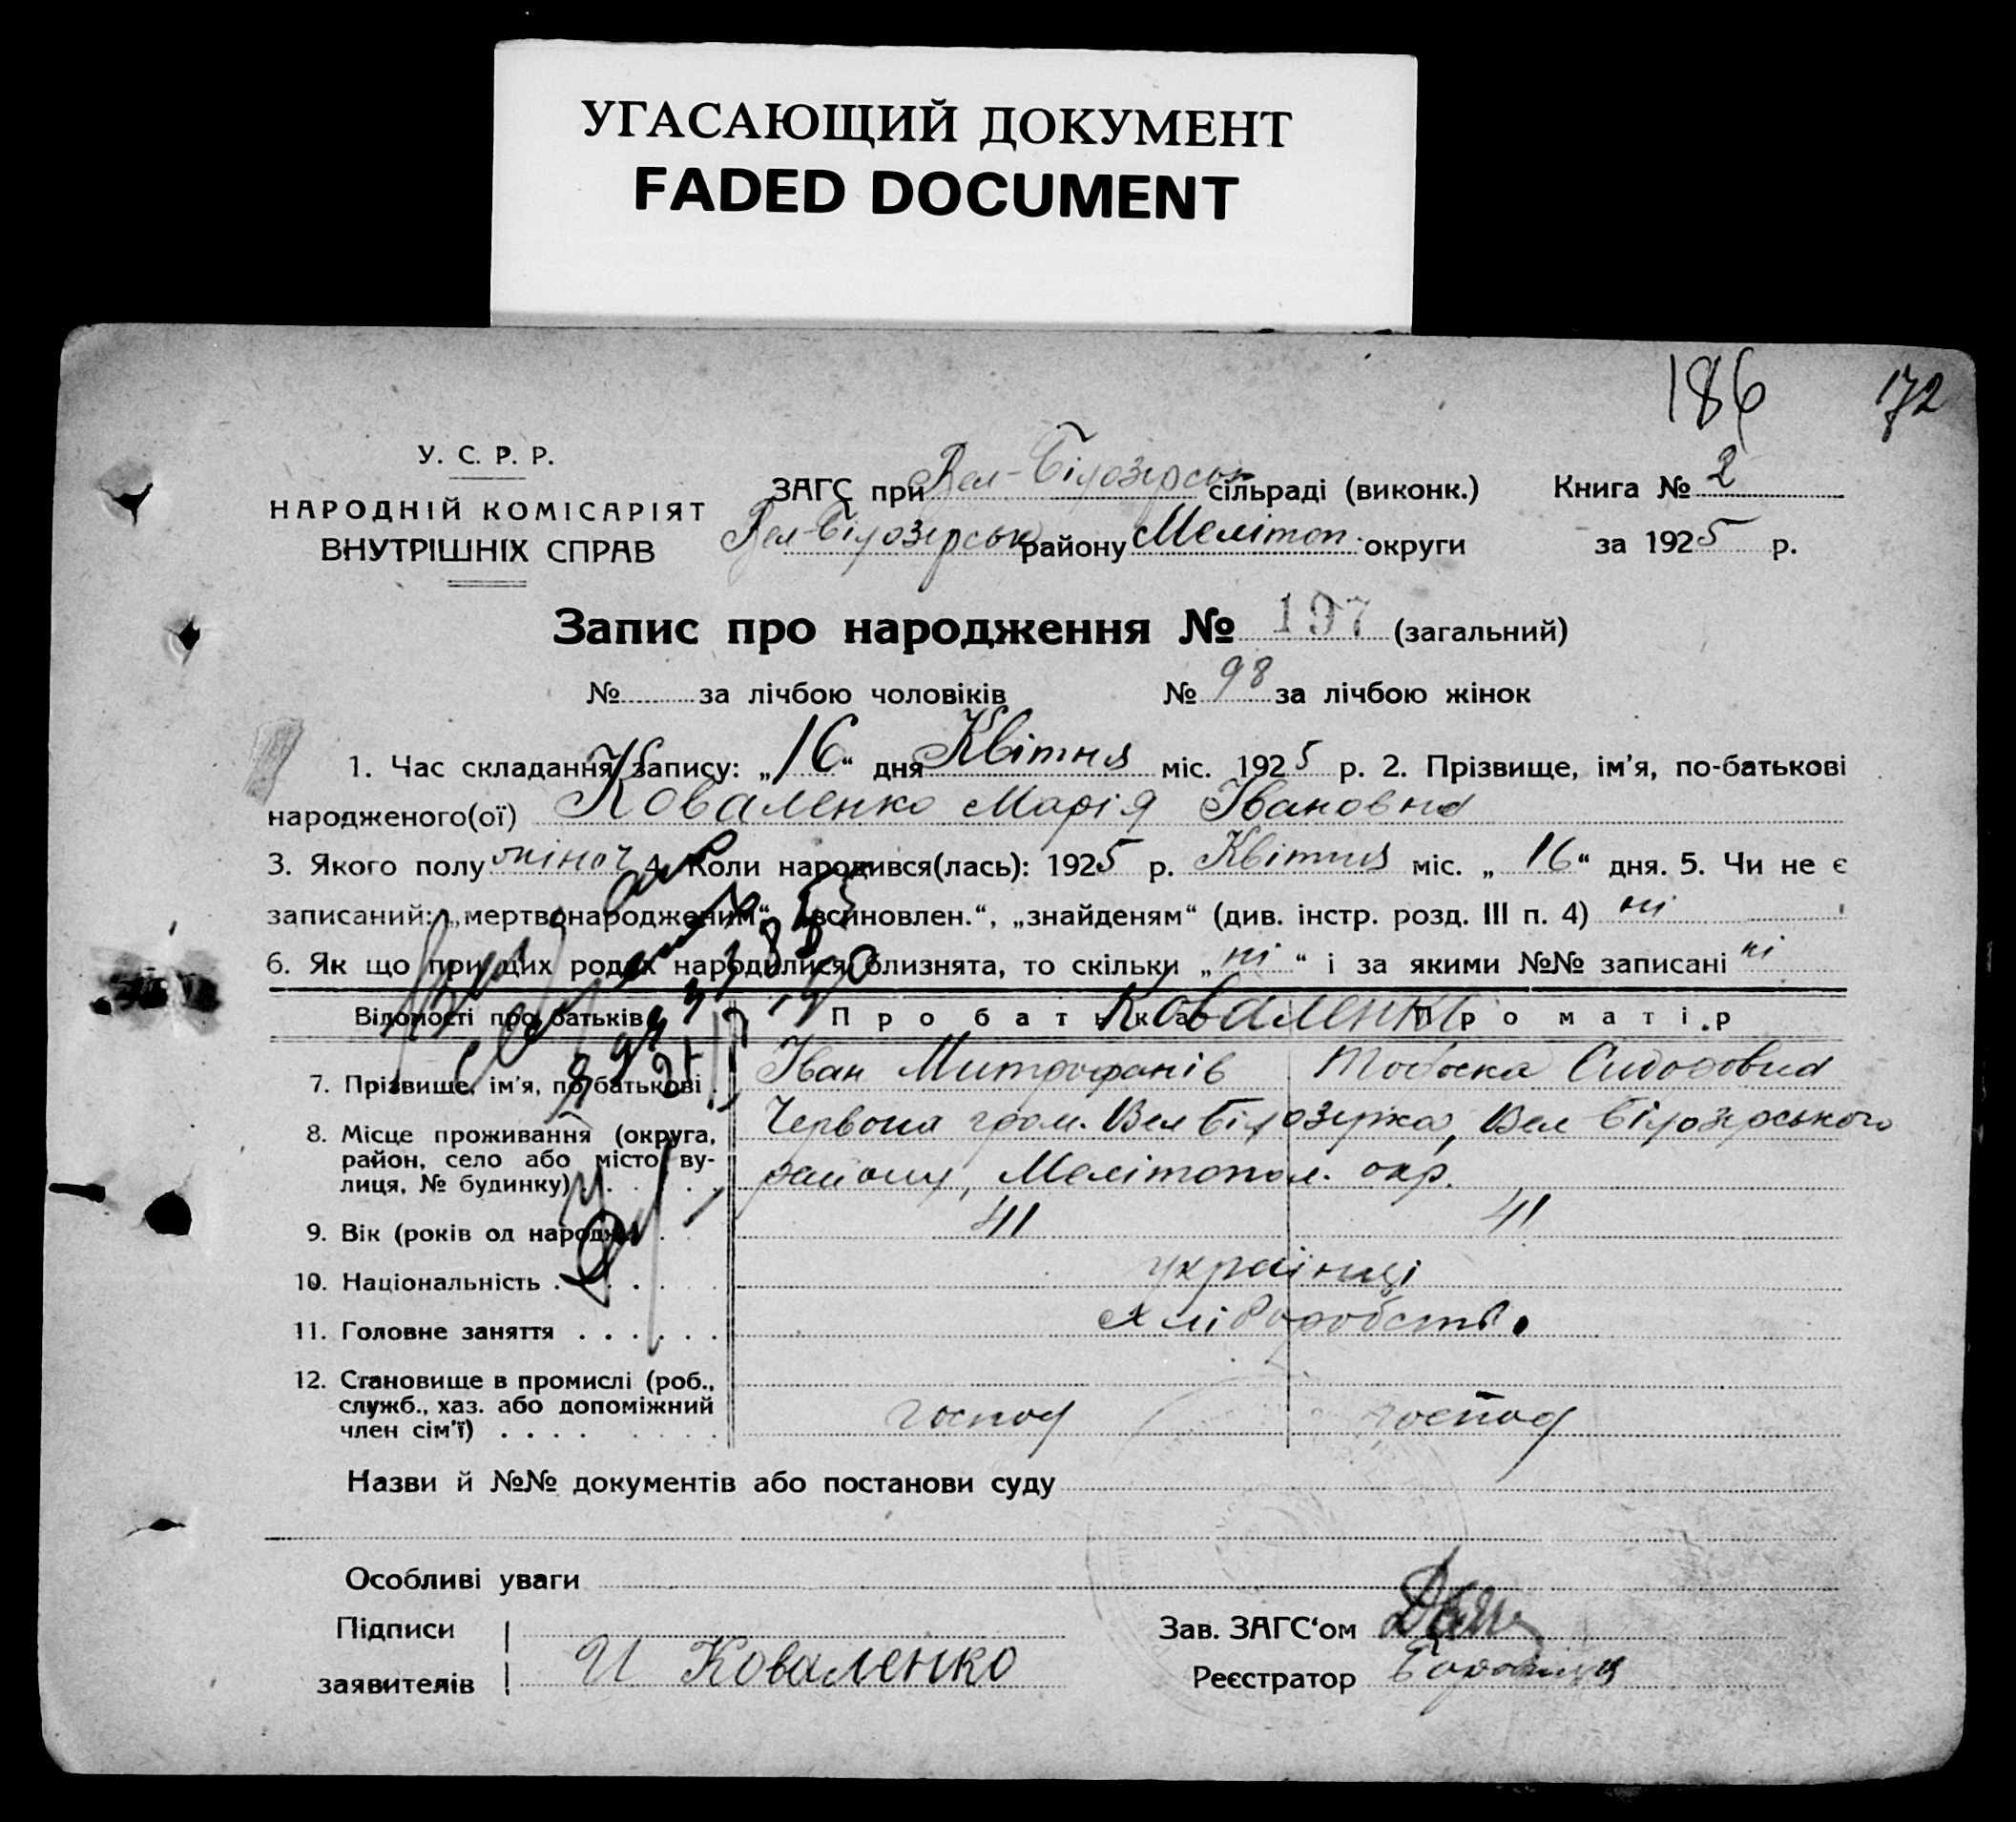 УГАСАЮЩИЙ ДОКУМЕНТ
FADED DOCUMENT
186 172
У. С. Р. Р.
НАРОДНІЙ КОМІСАРІЯТ
ВНУТРІШНІХ СПРАВ
ЗАГС при Вел-Білозерськ сільраді (виконк.)
Вел-Білозерськ району Мелітоп. округи
Книга № 2
за 1925 р.
Запис про народження № 197 (загальний)
№ за лічбою чоловіків № 98 за лічбою жінок
1. Час складання запису: „16“ дня Квітня міс. 1925 р. 2. Прізвище, ім'я, по-батькові
народженого(ої) Коваленко Марія Івановна
3. Якого полу жіноч 4. Коли народився(лась): 1925 р. Квітня міс. „16“ дня. 5. Чи не є
записаний: „мертвонародженим“, „всиновлен.“, „знайденям“ (див. інстр. розд. III п. 4) ні
6. Як що при цих родах народилися близнята, то скільки „ні“ і за якими №№ записані ні
Відомості про батьків Про батька Про матір
Коваленки
7. Прізвище, ім'я, по батькові Іван Митрофанів Сидоровна
8. Місце проживання (округа, Червона гром. Вел Білозерка, Вел Білозерського
район, село або місто, ву- району, Мелітопол. окр.
лиця, № будинку)
9. Вік (років од народж. 41 41
10. Національність українці
11. Головне заняття хліборобств.
12. Становище в промислі (роб.,
служб., хаз. або допоміжний господ господ
член сім'ї)
Назви й №№ документів або постанови суду
Особливі уваги
Підписи
заявителів И Коваленко
Зав. ЗАГС‘ом
Реєстратор